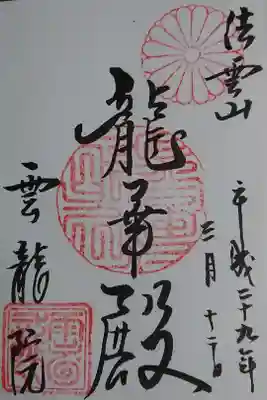 法雲山
平成二十九年
三月十二日
龍華殿
雲龍院